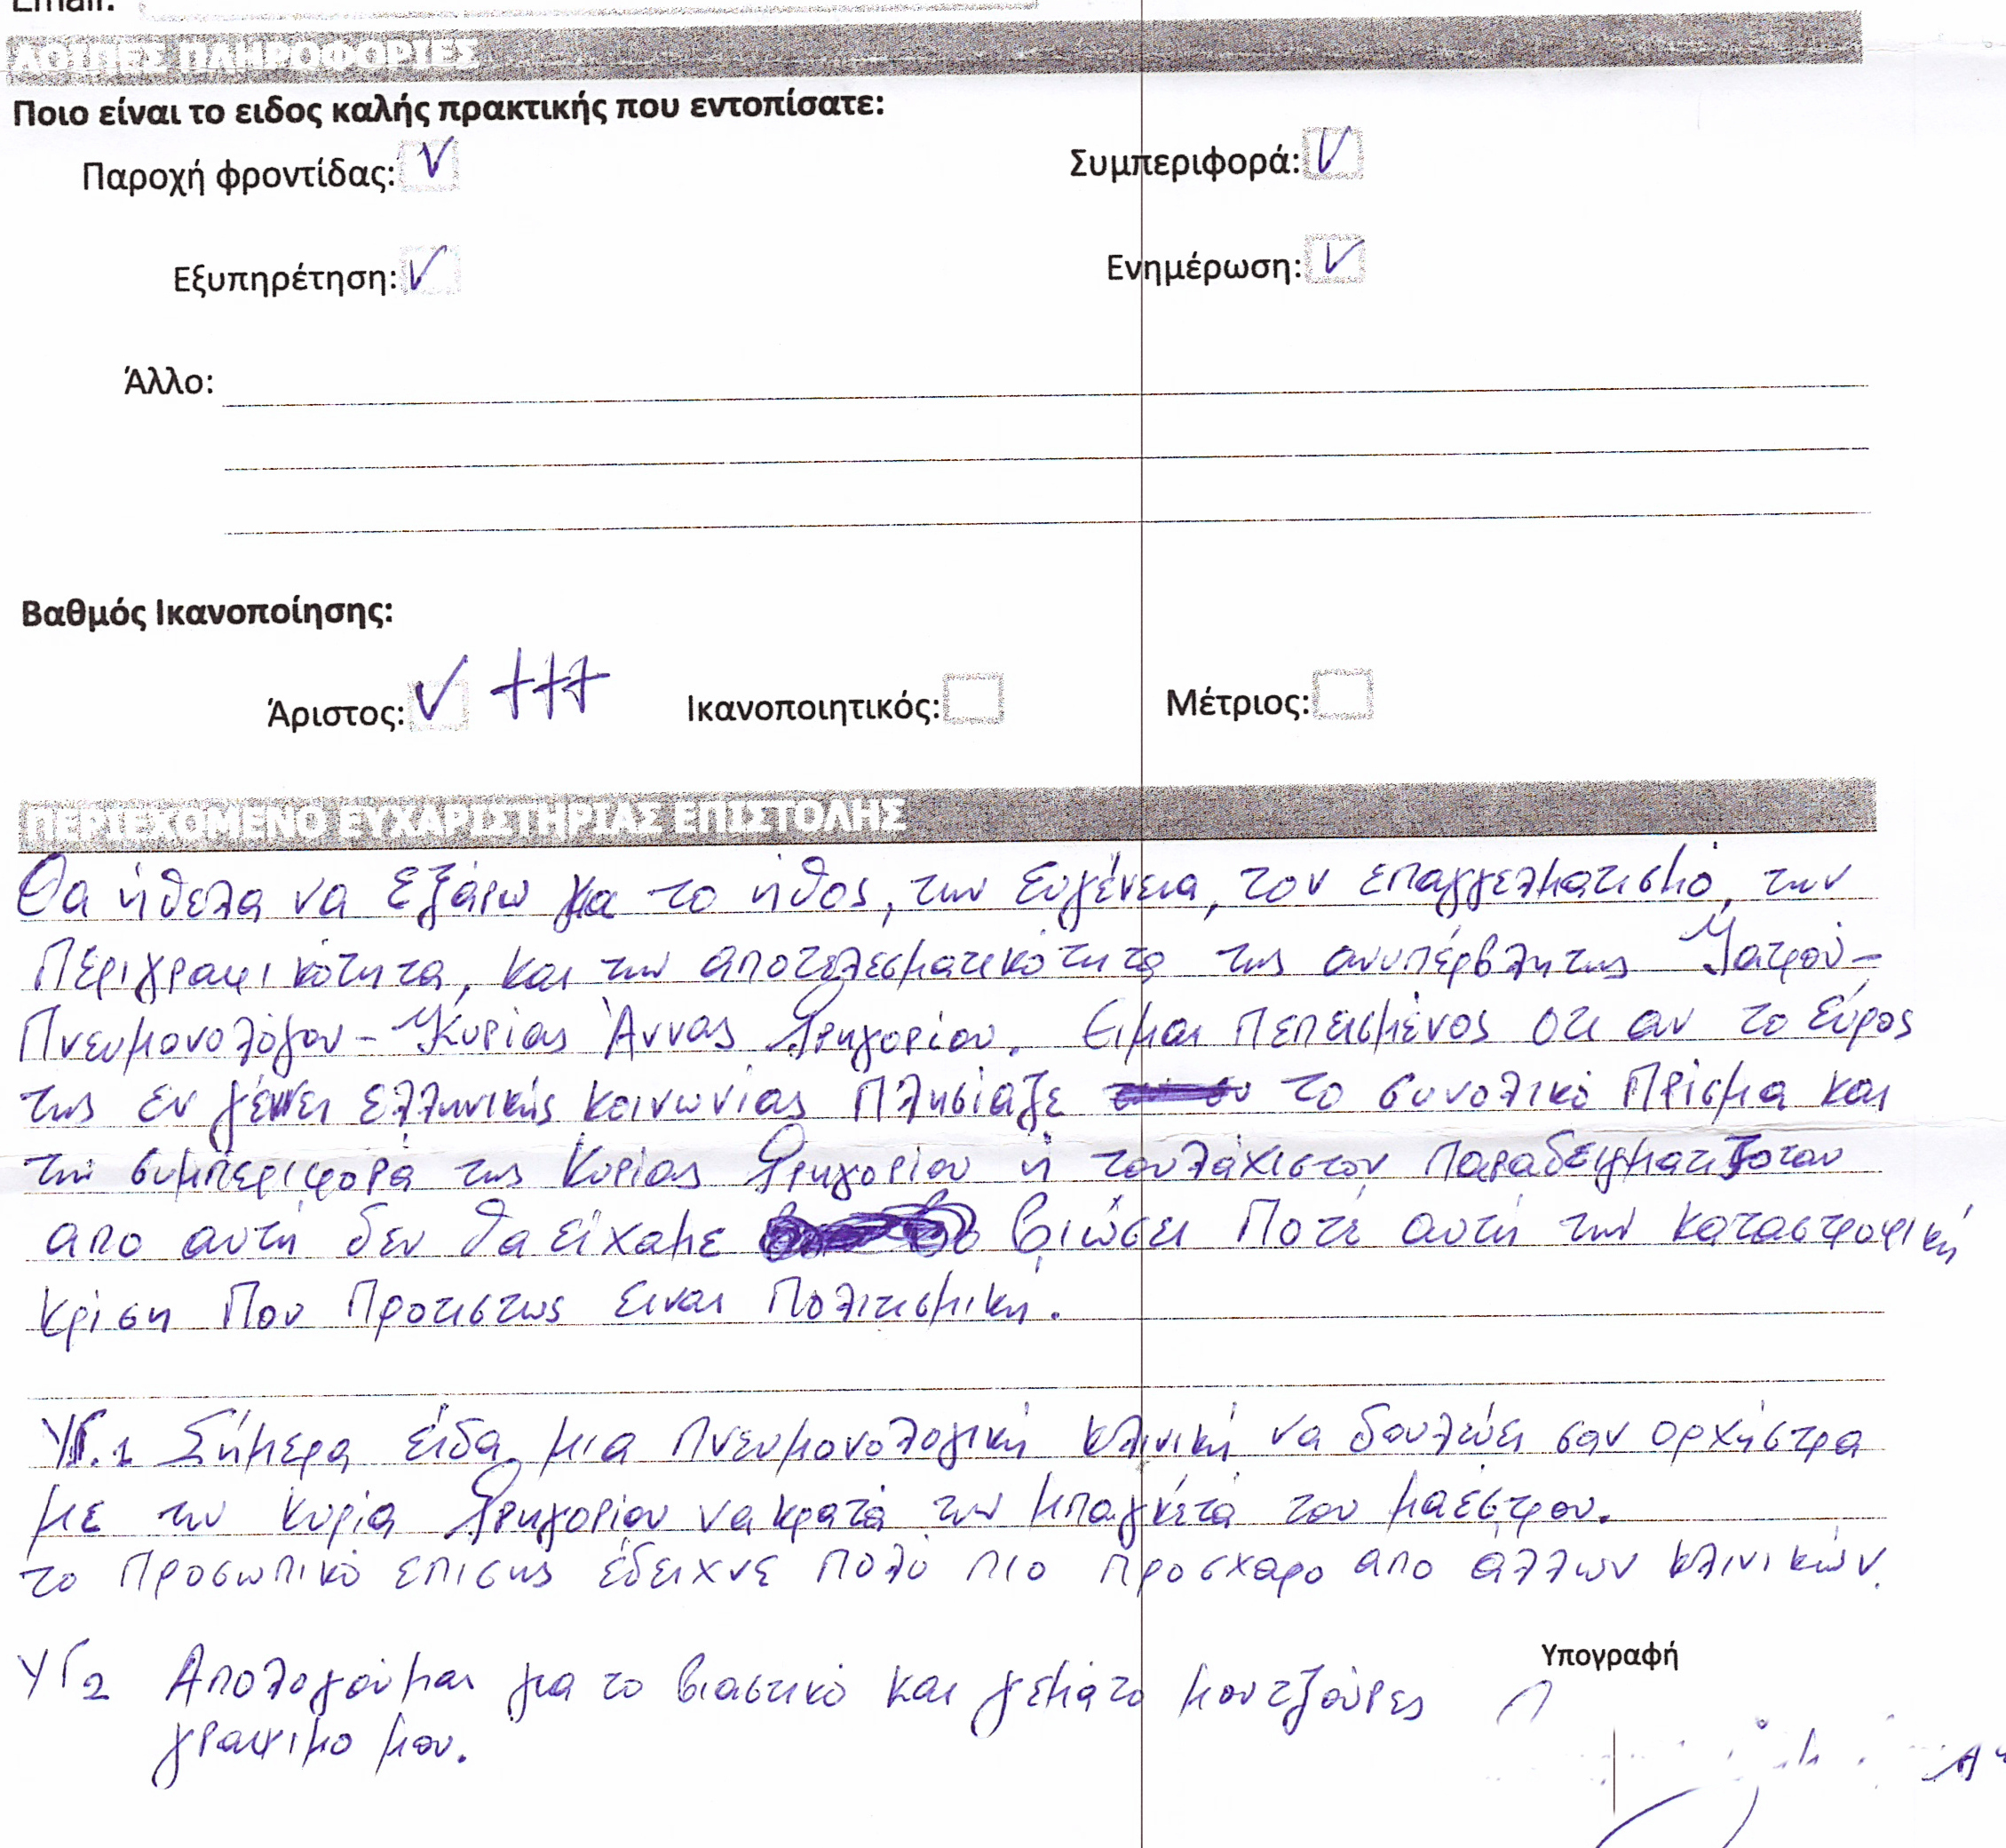 Email:
ΛΟΙΠΕΣ ΠΛΗΡΟΦΟΡΙΕΣ
Ποιο είναι το ειδος καλής πρακτικής που εντοπίσατε:
Παροχή φροντίδας: V Συμπεριφορά: V
Εξυπηρέτηση: V Ενημέρωση: V
Άλλο:
Βαθμός Ικανοποίησης:
Άριστος: V +++ Ικανοποιητικός: Μέτριος:
ΠΕΡΙΕΧΟΜΕΝΟ ΕΥΧΑΡΙΣΤΗΡΙΑΣ ΕΠΙΣΤΟΛΗΣ
Θα ήθελα να εξάρω για το ήθος, την ευγένεια, τον επαγγελματισμό, την
Περιγραφικότητα, και την αποτελεσματικότητα της ανυπέρβλητης Ιατρού-
Πνευμονολόγου - Κυρίας Άννας Γρηγορίου. Ειμαι Πεπεισμένος οτι αν το Εύρος
της εν γένει ελληνικής κοινωνίας Πλησίαζε το συνολικό Πρίσμα και
την συμπεριφορά της Κυρίας Γρηγορίου ή τουλάχιστον παραδειγματιζοταν
απο αυτή δεν θα είχαμε βιώσει Ποτέ αυτή την καταστροφική
κρίση Που Πρωτιστως ειναι Πολιτισμική.
ΥΓ.1 Σήμερα είδα μια πνευμονολογική κλινική να δουλεύει σαν ορχήστρα
με την κυρία Γρηγορίου να κρατά την μπαγκέτα του μαέστρου.
το Προσωπικό επισης έδειχνε πολύ πιο προσχαρο απο άλλων κλινικών.
ΥΓ2 Απολογούμαι για το βιαστικό και γεμάτο μουτζούρες
γραψιμο μου.
Υπογραφή